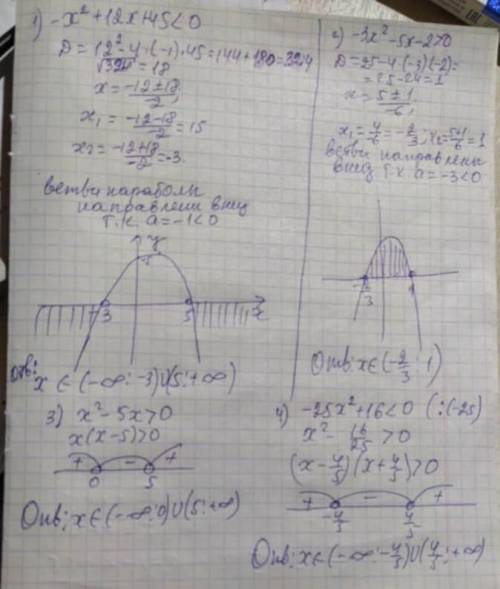 1) -x² + 12x + 45 < 0
D = 12² - 4·(-1)·45 = 144 + 180 = 324
√324 = 18
x = -12 ± 18 / -2;
x₁ = -12-18 / -2 = 15
x₂ = -12+18 / -2 = -3.
ветви параболы
направлены вниз
т.к. a = -1 < 0
y
-3 5 x
Отв: x ∈ (-∞; -3) U (5; +∞)
2) -3x² - 5x - 2 > 0
D = 25 - 4·(-3)·(-2) =
= 25 - 24 = 1
x = 5 ± 1 / -6;
x₁ = 4/-6 = -2/3; x₂ = 5+1/-6 = 1
ветви направлены
вниз т.к. a = -3 < 0
-2/3 1
Отв: x ∈ (-2/3; 1)
3) x² - 5x > 0
x(x-5) > 0
+ - +
0 5
Отв: x ∈ (-∞; 0) U (5; +∞)
4) -25x² + 16 < 0 (:(-25)
x² - 16/25 > 0
(x - 4/5)(x + 4/5) > 0
+ - +
-4/5 4/5
Отв: x ∈ (-∞; -4/5) U (4/5; +∞)